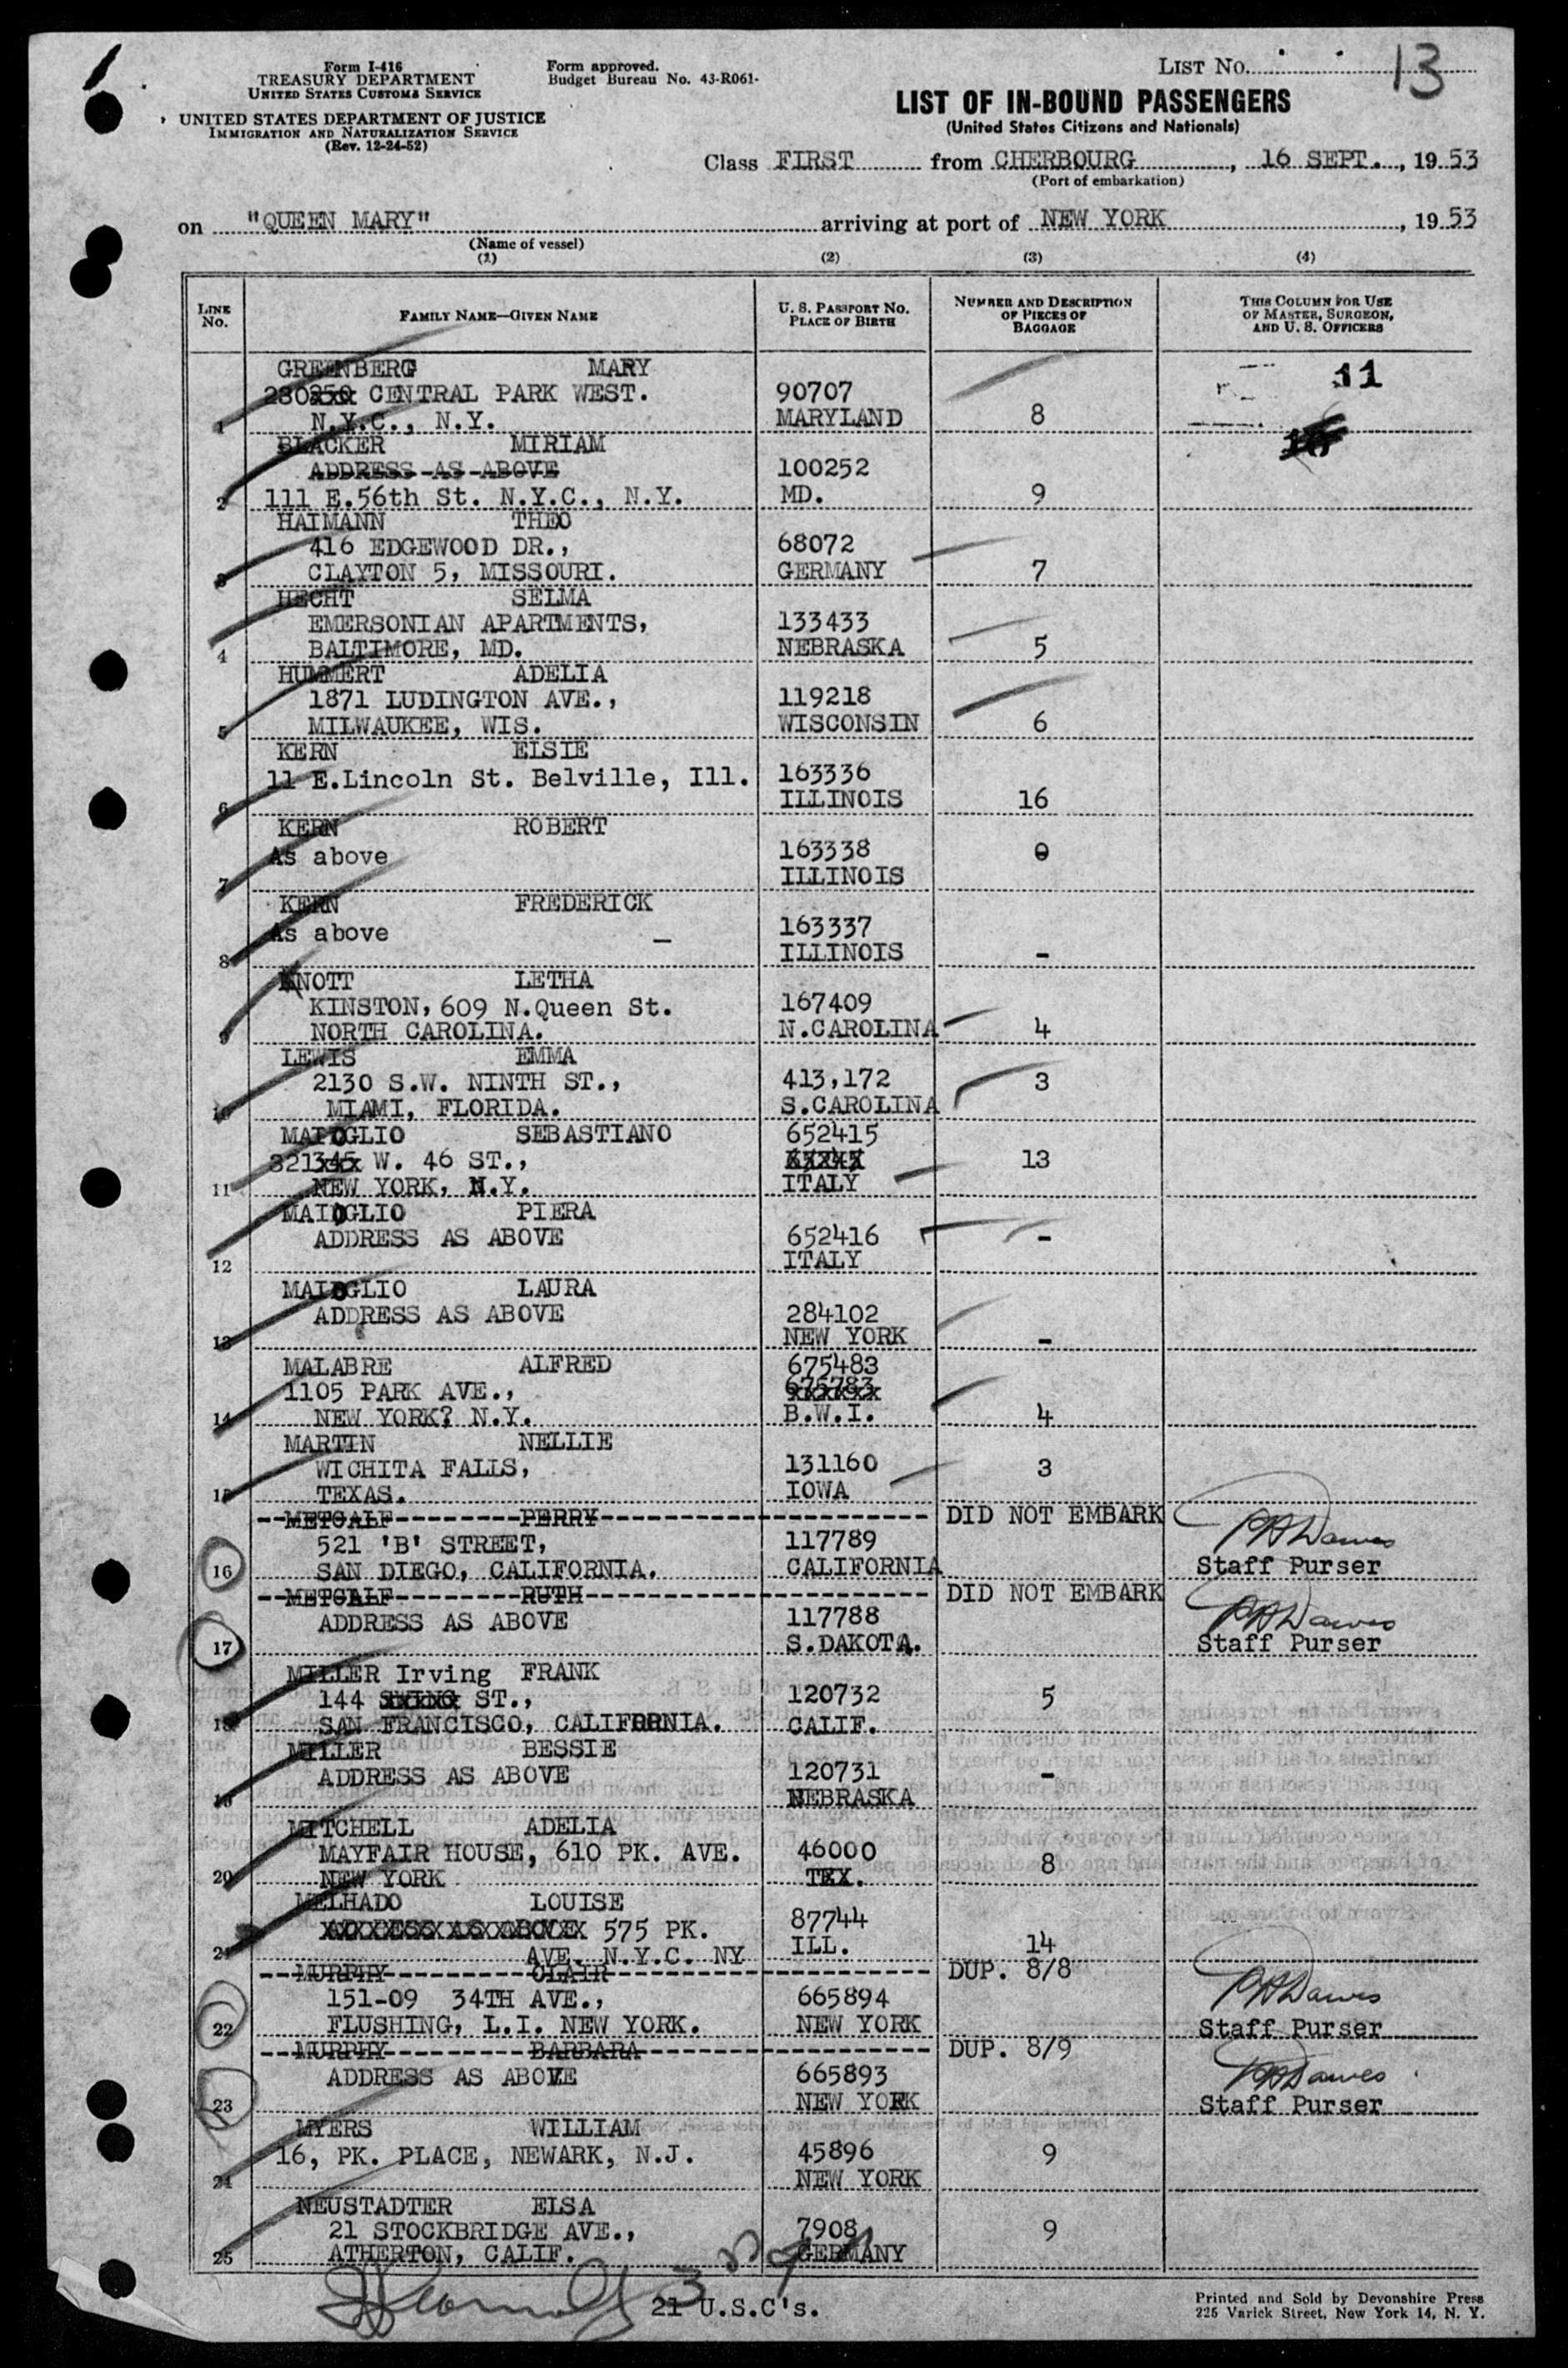 Form I-416
TREASURY DEPARTMENT
UNITED STATES CUSTOMS SERVICE
UNITED STATES DEPARTMENT OF JUSTICE
IMMIGRATION AND NATURALIZATION SERVICE
(Rev. 12-24-52)
Form approved.
Budget Bureau No. 43-R061-
LIST No. 13
LIST OF IN-BOUND PASSENGERS
(United States Citizens and Nationals)
Class FIRST from CHERBOURG, 16 SEPT., 1953
(Port of embarkation)
on "QUEEN MARY" arriving at port of NEW YORK, 1953
(Name of vessel)
(1) (2) (3) (4)
LINE No. FAMILY NAME—GIVEN NAME U. S. PASSPORT NO. PLACE OF BIRTH NUMBER AND DESCRIPTION OF PIECES OF BAGGAGE THIS COLUMN FOR USE OF MASTER, SURGEON, AND U. S. OFFICERS
GREENBERG MARY 11
280 CENTRAL PARK WEST. 90707
1 N.Y.C., N.Y. MARYLAND 8
BLACKER MIRIAM
ADDRESS AS ABOVE 100252
2 111 E.56th St. N.Y.C., N.Y. MD. 9
HAIMANN THEO
416 EDGEWOOD DR., 68072
3 CLAYTON 5, MISSOURI. GERMANY 7
HECHT SELMA
EMERSONIAN APARTMENTS, 133433
4 BALTIMORE, MD. NEBRASKA 5
HUMMERT ADELIA
1871 LUDINGTON AVE., 119218
5 MILWAUKEE, WIS. WISCONSIN 6
KERN ELSIE
11 E.Lincoln St. Belville, Ill. 163336
6 ILLINOIS 16
KERN ROBERT
As above 163338 0
7 ILLINOIS
KERN FREDERICK
As above - 163337
8 ILLINOIS -
KNOTT LETHA
KINSTON, 609 N.Queen St. 167409
9 NORTH CAROLINA. N.CAROLINA 4
LEWIS EMMA
2130 S.W. NINTH ST., 413,172 3
10 MIAMI, FLORIDA. S.CAROLINA
MAIOGLIO SEBASTIANO 652415
321 W. 46 ST., 13
11 NEW YORK, N.Y. ITALY
MAIOGLIO PIERA
ADDRESS AS ABOVE 652416 -
12 ITALY
MAIOGLIO LAURA
ADDRESS AS ABOVE 284102
13 NEW YORK -
MALABRE ALFRED 675483
1105 PARK AVE., 675783
14 NEW YORK? N.Y. B.W.I. 4
MARTIN NELLIE
WICHITA FALLS, 131160 3
15 TEXAS. IOWA
METCALF PERRY DID NOT EMBARK
521 'B' STREET, 117789 PHDawes
16 SAN DIEGO, CALIFORNIA. CALIFORNIA Staff Purser
METCALF RUTH DID NOT EMBARK
ADDRESS AS ABOVE 117788 PHDawes
17 S.DAKOTA. Staff Purser
MILLER Irving FRANK
144 ST., 120732 5
18 SAN FRANCISCO, CALIFORNIA. CALIF.
MILLER BESSIE
ADDRESS AS ABOVE 120731 -
19 NEBRASKA
MITCHELL ADELIA
MAYFAIR HOUSE, 610 PK. AVE. 46000 8
20 NEW YORK TEX.
MELHADO LOUISE
ADDRESS AS ABOVE 575 PK. 87744
21 AVE. N.Y.C. NY ILL. 14
MURPHY CLAIR DUP. 8/8
151-09 34TH AVE., 665894 PHDawes
22 FLUSHING, L.I. NEW YORK. NEW YORK Staff Purser
MURPHY BARBARA DUP. 8/9
ADDRESS AS ABOVE 665893 PHDawes
23 NEW YORK Staff Purser
MYERS WILLIAM
16, PK. PLACE, NEWARK, N.J. 45896 9
24 NEW YORK
NEUSTADTER ELSA
21 STOCKBRIDGE AVE., 7908 9
25 ATHERTON, CALIF. GERMANY
21 U.S.C's.
Printed and Sold by Devonshire Press
225 Varick Street, New York 14, N. Y.